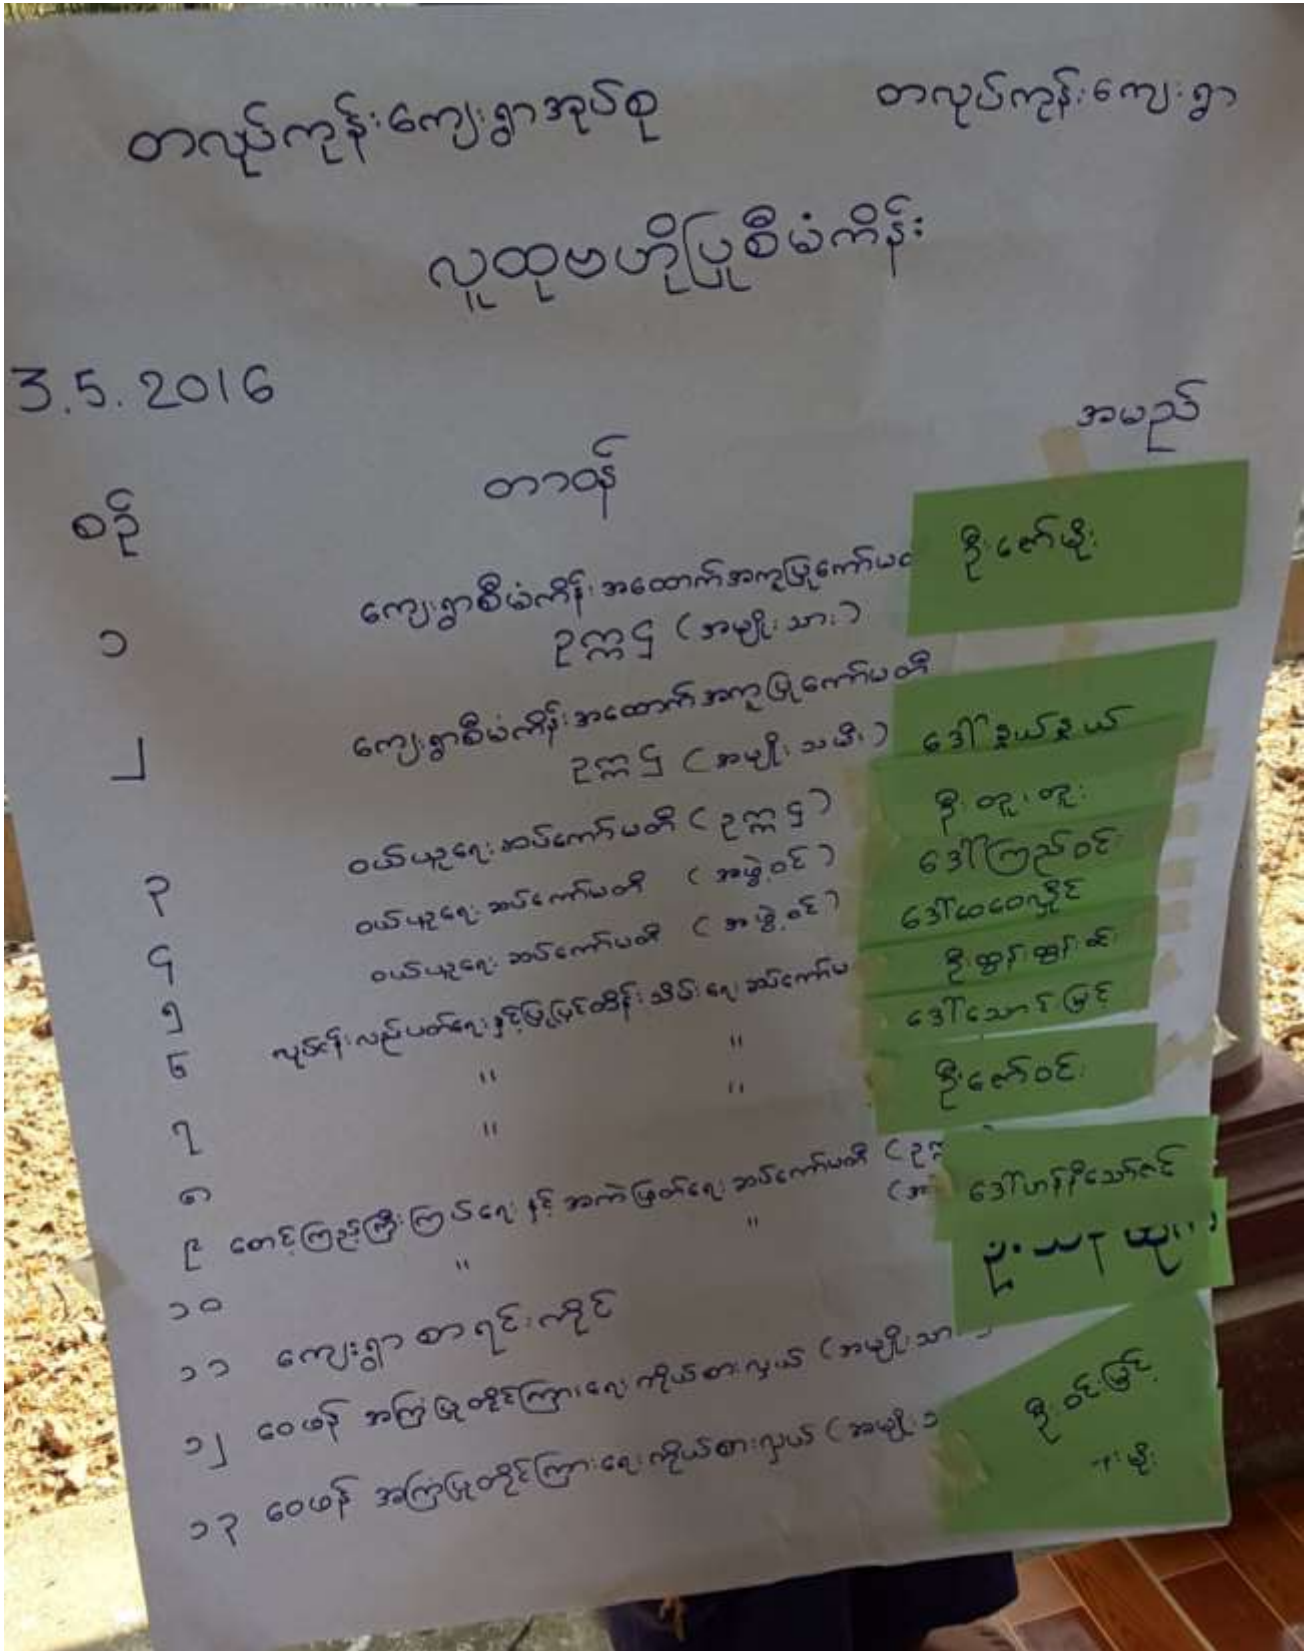 တလုပ်ကုန်းကျေးရွာအုပ်စု တလုပ်ကုန်းကျေးရွာ
လူထုဗဟိုပြုစီမံကိန်း
3.5.2016
စဉ် တာဝန် အမည်
၁ ကျေးရွာစီမံကိန်းအထောက်အကူပြုကော်မ ဦးဇော်မိုး
ဥက္ကဌ (အမျိုးသား)
၂ ကျေးရွာစီမံကိန်းအထောက်အကူပြုကော်မတီ
ဥက္ကဌ (အမျိုးသမီး) ဒေါ်နွယ်နွယ်
၃ ဝယ်ယူရေးဆပ်ကော်မတီ (ဥက္ကဌ) ဦးတူးတူး
၄ ဝယ်ယူရေးဆပ်ကော်မတီ (အဖွဲ့ဝင်) ဒေါ်ကြည်ဝင်း
၅ ဝယ်ယူရေးဆပ်ကော်မတီ (အဖွဲ့ဝင်) ဒေါ်ဝေဝေလှိုင်
၆ လုပ်ငန်းလည်ပတ်ရေးနှင့်ပြုပြင်ထိန်းသိမ်းရေးဆပ်ကော်မ ဦးထွန်းထွန်းဝင်း
၇ " " ဒေါ်သောင်းမြင့်
၈ " " ဦးဇော်ဝင်း
၉ စောင့်ကြည့်ကြီးကြပ်ရေးနှင့် အကဲဖြတ်ရေးဆပ်ကော်မတီ (ဥက္က ဒေါ်ဟန်နီသော်ဇင်
၁၀ " " (အ
၁၁ ကျေးရွာစာရင်းကိုင်
၁၂ ဝေဖန် အကြံပြုတိုင်ကြားရေးကိုယ်စားလှယ် (အမျိုးသား ဦးဝင်းမြင့်
၁၃ ဝေဖန် အကြံပြုတိုင်ကြားရေးကိုယ်စားလှယ် (အမျိုး